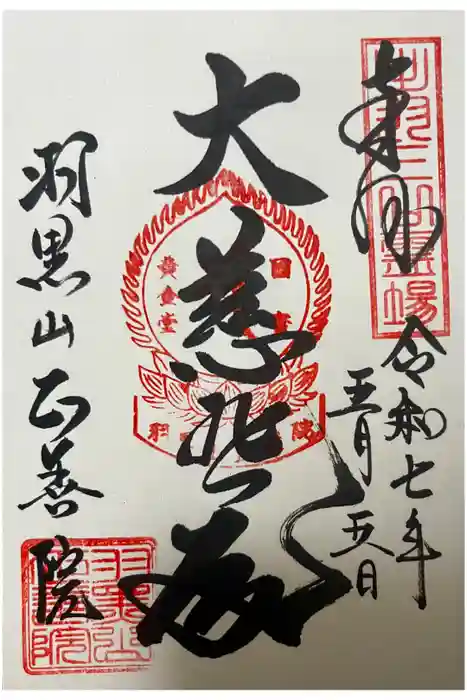 奉拝
出羽三山霊場
令和七年
五月五日
大慈悲殿
国宝
黄金堂
羽黒山正善院